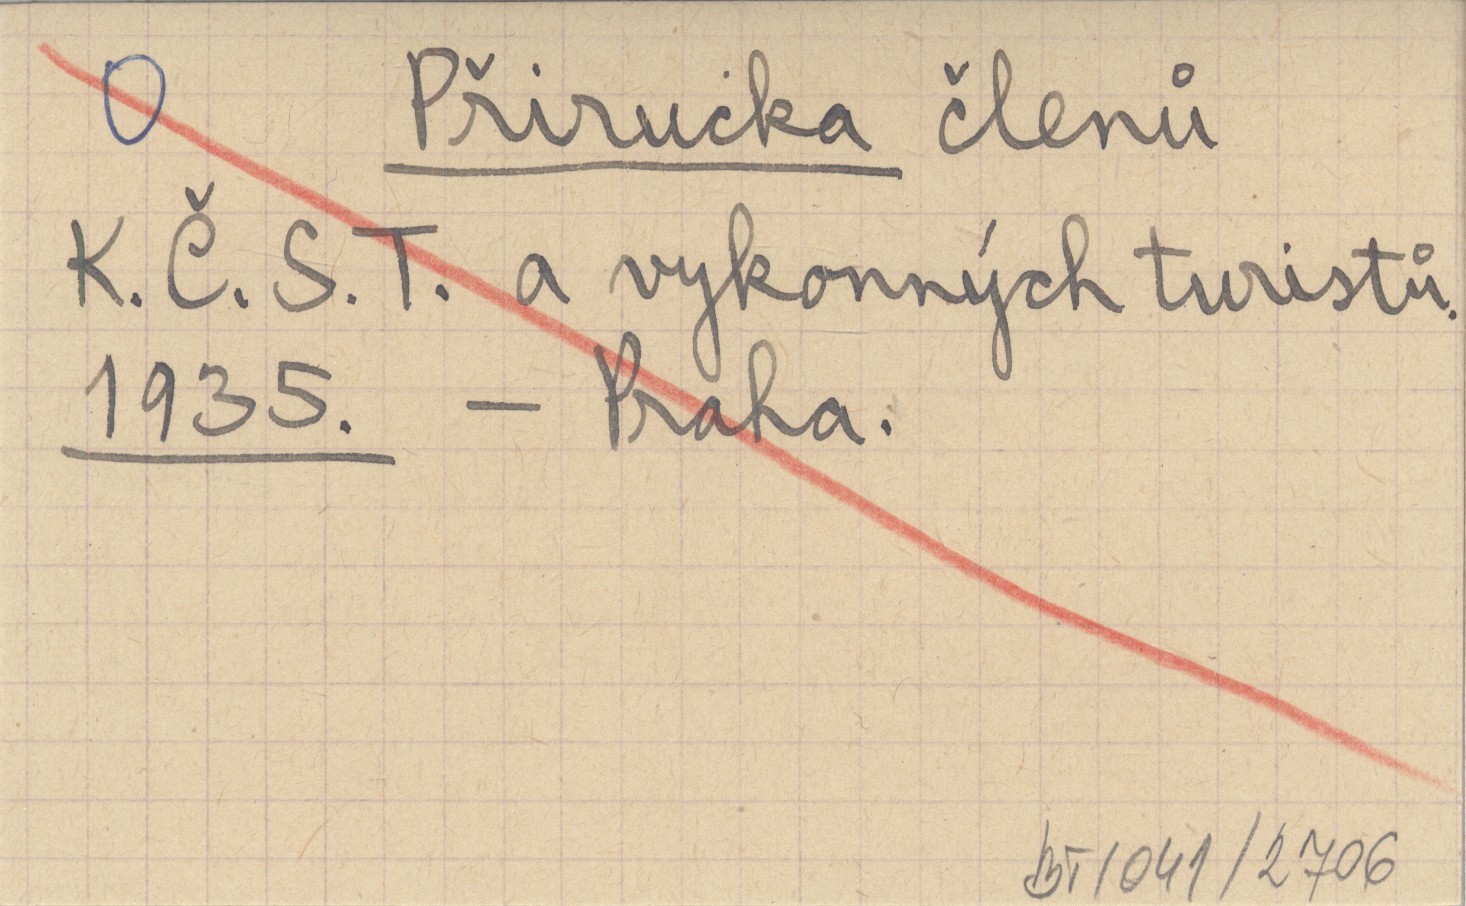 O Přirucka členů
K.Č.S.T. a vykonných turistů.
1935. — Praha.
BT/041/2706